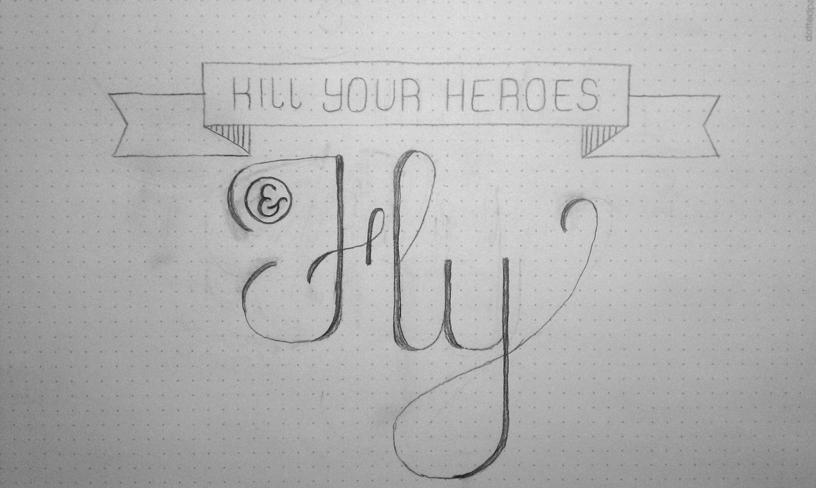 KILL YOUR HEROES
& Fly